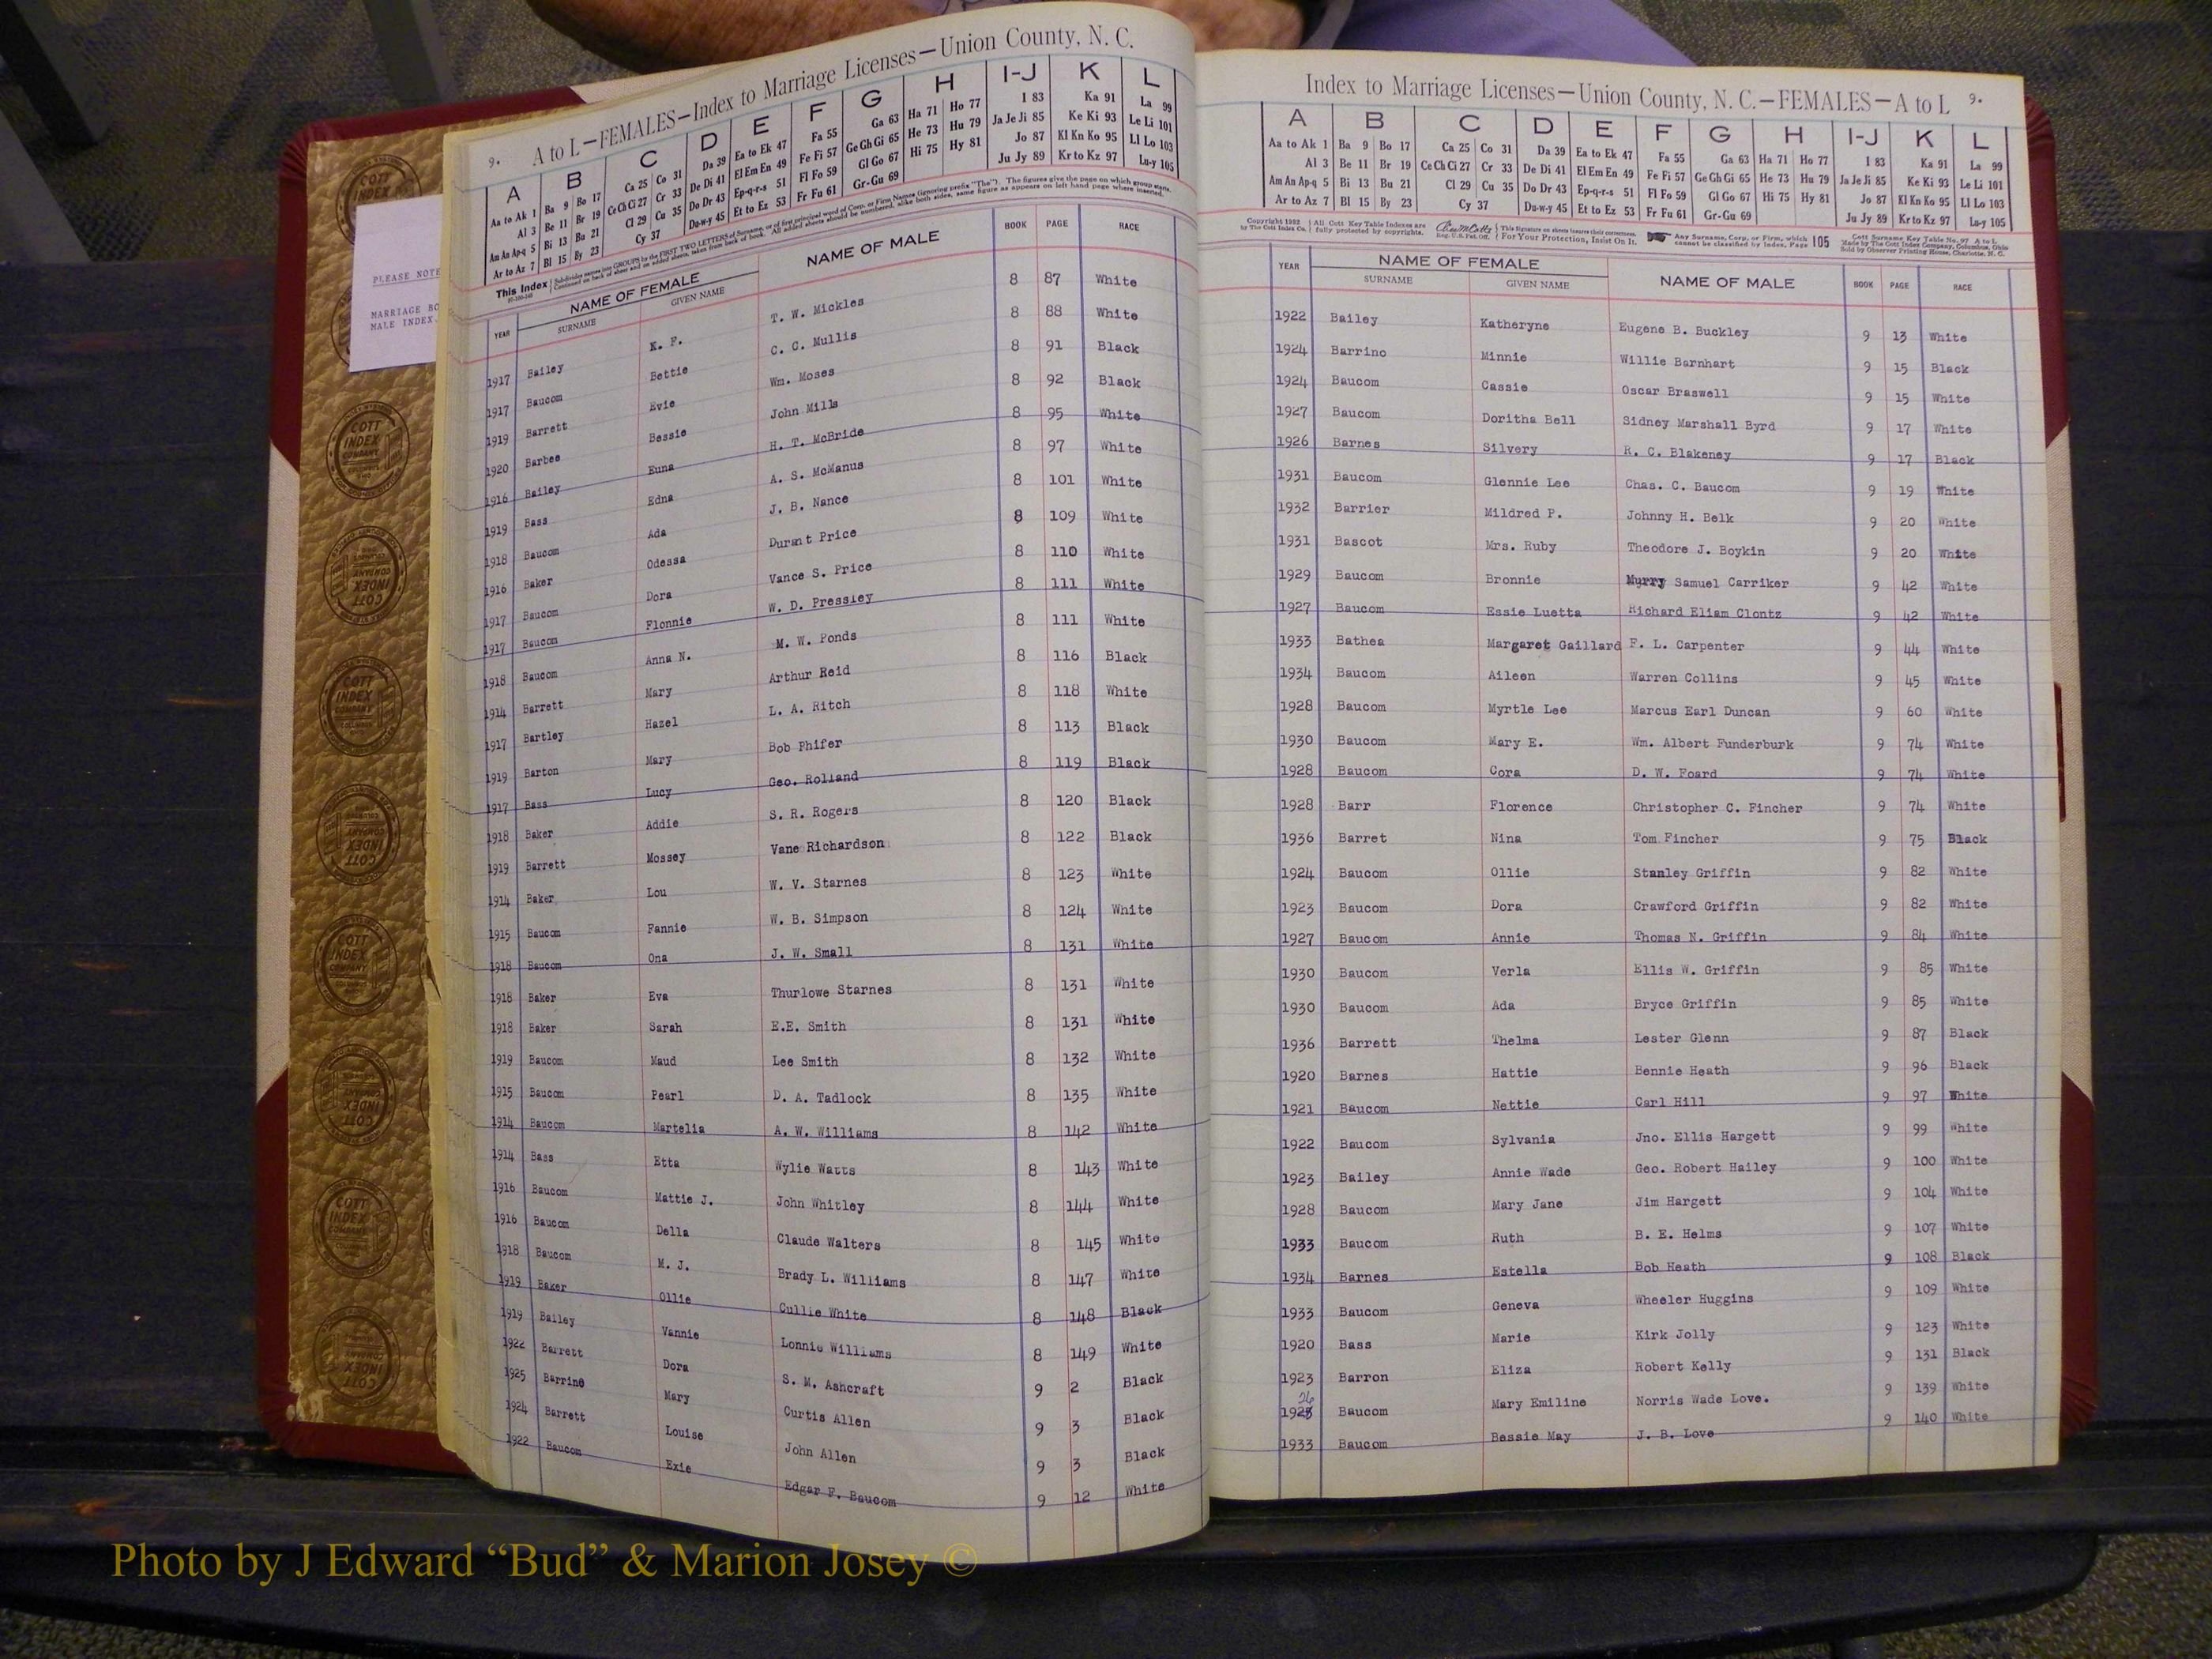 PLEASE NOTE
MARRIAGE BO
MALE INDEX.
9. A to L—FEMALES—Index to Marriage Licenses—Union County, N. C.
A B C D E F G H I-J K L
Aa to Ak 1 Ba 9 Bo 17 Ca 25 Co 31 Da 39 Ea to Ek 47 Fa 55 Ga 63 Ha 71 Ho 77 I 83 Ka 91 La 99
Al 3 Be 11 Br 19 Ce Ch Ci 27 Cr 33 De Di 41 El Em En 49 Fe Fi 57 Ge Gh Gi 65 He 73 Hu 79 Ja Je Ji 85 Ke Ki 93 Le Li 101
Am An Ap-q 5 Bi 13 Bu 21 Cl 29 Cu 35 Do Dr 43 Ep-q-r-s 51 Fl Fo 59 Gl Go 67 Hi 75 Hy 81 Jo 87 Kl Kn Ko 95 Ll Lo 103
Ar to Az 7 Bl 15 By 23 Cy 37 Du-w-y 45 Et to Ez 53 Fr Fu 61 Gr-Gu 69 Ju Jy 89 Kr to Kz 97 Lu-y 105
This Index Subdivides names into GROUPS by the FIRST TWO LETTERS of Surname, or of first principal word of Corp. or Firm Names (ignoring prefix "The"). The figures give the page on which group starts.
Continued on back of sheet and on added sheets, taken from back of book. All added sheets should be numbered, alike both sides, same figure as appears on left hand page where inserted.
YEAR NAME OF FEMALE NAME OF MALE BOOK PAGE RACE
SURNAME GIVEN NAME
1917 Bailey K. F. T. W. Mickles 8 87 White
1917 Baucom Bettie C. C. Mullis 8 88 White
1919 Barrett Evie Wm. Moses 8 91 Black
1920 Barbee Bessie John Mills 8 92 Black
1916 Bailey Euna H. T. McBride 8 95 White
1919 Bass Edna A. S. McManus 8 97 White
1918 Baucom Ada J. B. Nance 8 101 White
1916 Baker Odessa Durant Price 8 109 White
1917 Baucom Dora Vance S. Price 8 110 White
1917 Baucom Flonnie W. D. Pressley 8 111 White
1918 Baucom Anna N. M. W. Ponds 8 111 White
1914 Barrett Mary Arthur Reid 8 116 Black
1917 Bartley Hazel L. A. Ritch 8 118 White
1919 Barton Mary Bob Phifer 8 113 Black
1917 Bass Lucy Geo. Rolland 8 119 Black
1918 Baker Addie S. R. Rogers 8 120 Black
1919 Barrett Mossey Vane Richardson 8 122 Black
1914 Baker Lou W. V. Starnes 8 123 White
1915 Baucom Fannie W. B. Simpson 8 124 White
1918 Baucom Ona J. W. Small 8 131 White
1918 Baker Eva Thurlowe Starnes 8 131 White
1918 Baker Sarah E.E. Smith 8 131 White
1919 Baucom Maud Lee Smith 8 132 White
1915 Baucom Pearl D. A. Tadlock 8 135 White
1914 Baucom Martelia A. W. Williams 8 142 White
1914 Bass Etta Wylie Watts 8 143 White
1916 Baucom Mattie J. John Whitley 8 144 White
1916 Baucom Della Claude Walters 8 145 White
1918 Baucom M. J. Brady L. Williams 8 147 White
1919 Baker Ollie Cullie White 8 148 Black
1919 Bailey Vannie Lonnie Williams 8 149 White
1922 Barrett Dora S. M. Ashcraft 9 2 Black
1925 Barrino Mary Curtis Allen 9 3 Black
1924 Barrett Louise John Allen 9 3 Black
1922 Baucom Exie Edgar F. Baucom 9 12 White
Index to Marriage Licenses—Union County, N. C.—FEMALES—A to L 9.
A B C D E F G H I-J K L
Aa to Ak 1 Ba 9 Bo 17 Ca 25 Co 31 Da 39 Ea to Ek 47 Fa 55 Ga 63 Ha 71 Ho 77 I 83 Ka 91 La 99
Al 3 Be 11 Br 19 Ce Ch Ci 27 Cr 33 De Di 41 El Em En 49 Fe Fi 57 Ge Gh Gi 65 He 73 Hu 79 Ja Je Ji 85 Ke Ki 93 Le Li 101
Am An Ap-q 5 Bi 13 Bu 21 Cl 29 Cu 35 Do Dr 43 Ep-q-r-s 51 Fl Fo 59 Gl Go 67 Hi 75 Hy 81 Jo 87 Kl Kn Ko 95 Ll Lo 103
Ar to Az 7 Bl 15 By 23 Cy 37 Du-w-y 45 Et to Ez 53 Fr Fu 61 Gr-Gu 69 Ju Jy 89 Kr to Kz 97 Lu-y 105
Copyright by The Cott Index Co. All Cott Key Table Indexes are fully protected by copyrights. Reg. U.S. Pat. Off. This signature on sheets insures their correctness. For Your Protection, Insist On It. Any Surname, Corp. or Firm, which cannot be classified by index, Page 105 Cott Surname Key Table No. 97 A to L Made by The Cott Index Company, Columbus, Ohio Sold by Observer Printing House, Charlotte, N. C.
YEAR NAME OF FEMALE NAME OF MALE BOOK PAGE RACE
SURNAME GIVEN NAME
1922 Bailey Katheryne Eugene B. Buckley 9 13 White
1924 Barrino Minnie Willie Barnhart 9 15 Black
1924 Baucom Cassie Oscar Braswell 9 15 White
1927 Baucom Doritha Bell Sidney Marshall Byrd 9 17 White
1926 Barnes Silvery R. C. Blakeney 9 17 Black
1931 Baucom Glennie Lee Chas. C. Baucom 9 19 White
1932 Barrier Mildred P. Johnny H. Belk 9 20 White
1931 Bascot Mrs. Ruby Theodore J. Boykin 9 20 White
1929 Baucom Bronnie Murry Samuel Carriker 9 42 White
1927 Baucom Essie Luetta Richard Eliam Clontz 9 42 White
1933 Bathea Margaret Gaillard F. L. Carpenter 9 44 White
1934 Baucom Aileen Warren Collins 9 45 White
1928 Baucom Myrtle Lee Marcus Earl Duncan 9 60 White
1930 Baucom Mary E. Wm. Albert Funderburk 9 74 White
1928 Baucom Cora D. W. Foard 9 74 White
1928 Barr Florence Christopher C. Fincher 9 74 White
1936 Barret Nina Tom Fincher 9 75 Black
1924 Baucom Ollie Stanley Griffin 9 82 White
1923 Baucom Dora Crawford Griffin 9 82 White
1927 Baucom Annie Thomas N. Griffin 9 84 White
1930 Baucom Verla Ellis W. Griffin 9 85 White
1930 Baucom Ada Bryce Griffin 9 85 White
1936 Barrett Thelma Lester Glenn 9 87 Black
1920 Barnes Hattie Bennie Heath 9 96 Black
1921 Baucom Nettie Carl Hill 9 97 White
1922 Baucom Sylvania Jno. Ellis Hargett 9 99 White
1923 Bailey Annie Wade Geo. Robert Hailey 9 100 White
1928 Baucom Mary Jane Jim Hargett 9 104 White
1933 Baucom Ruth B. E. Helms 9 107 White
1934 Barnes Estella Bob Heath 9 108 Black
1933 Baucom Geneva Wheeler Huggins 9 109 White
1920 Bass Marie Kirk Jolly 9 123 White
1923 Barron Eliza Robert Kelly 9 131 Black
26
1925 Baucom Mary Emiline Norris Wade Love. 9 139 White
1933 Baucom Bessie May J. B. Love 9 140 White
COTT INDEX COMPANY
Photo by J Edward “Bud” & Marion Josey ©